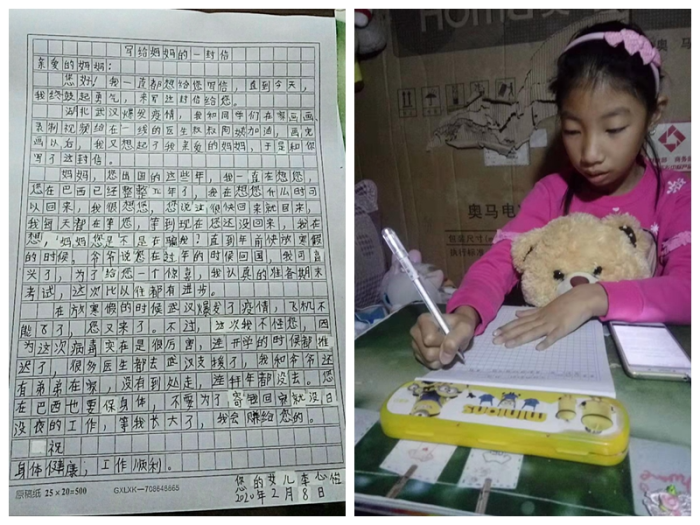 写给妈妈的一封信
亲爱的妈妈：
您好！我一直都想给您写信，直到今天，
我终于鼓起勇气，来写这封信给您。
湖北武汉爆发疫情，我和同学们在家画画
录制视频给在一线的医生叔叔阿姨加油，画完
画以后，我又想起了我亲爱的妈妈，于是和你
写了这封信。
妈妈，您出国的这些年，我一直在想您，
您在巴西已经整整五年了，我在想您什么时可
以回来，我很想您，您说过很快回来就回来，
我每天都在等您，等到现在您还没回来，我在
想，"妈妈您是不是在骗我？直到年前快放寒假
的时候。爷爷说您在过年的时候回国，我可高
兴了，为了给您一个惊喜，我认真的准备期末
考试，这次比以往都有进步。
在放寒假的时候武汉爆发了疫情，飞机不
能飞了，您又来了。不过，这次我不怪您，因
为这次病毒实在是很厉害，连开学的时候都推
迟了，很多医生都去武汉支援了，我和爷爷还
有弟弟在家，没有到处走，连拜年都没去。您
在巴西也要保身体，不要为了寄钱回家就没日
没夜的工作，等我长大了，我会赚给您的。
祝
身体健康，工作顺利。
您的女儿
2020年2月8日
原稿纸 25×20=500
奥马电
包装尺寸
执行标准